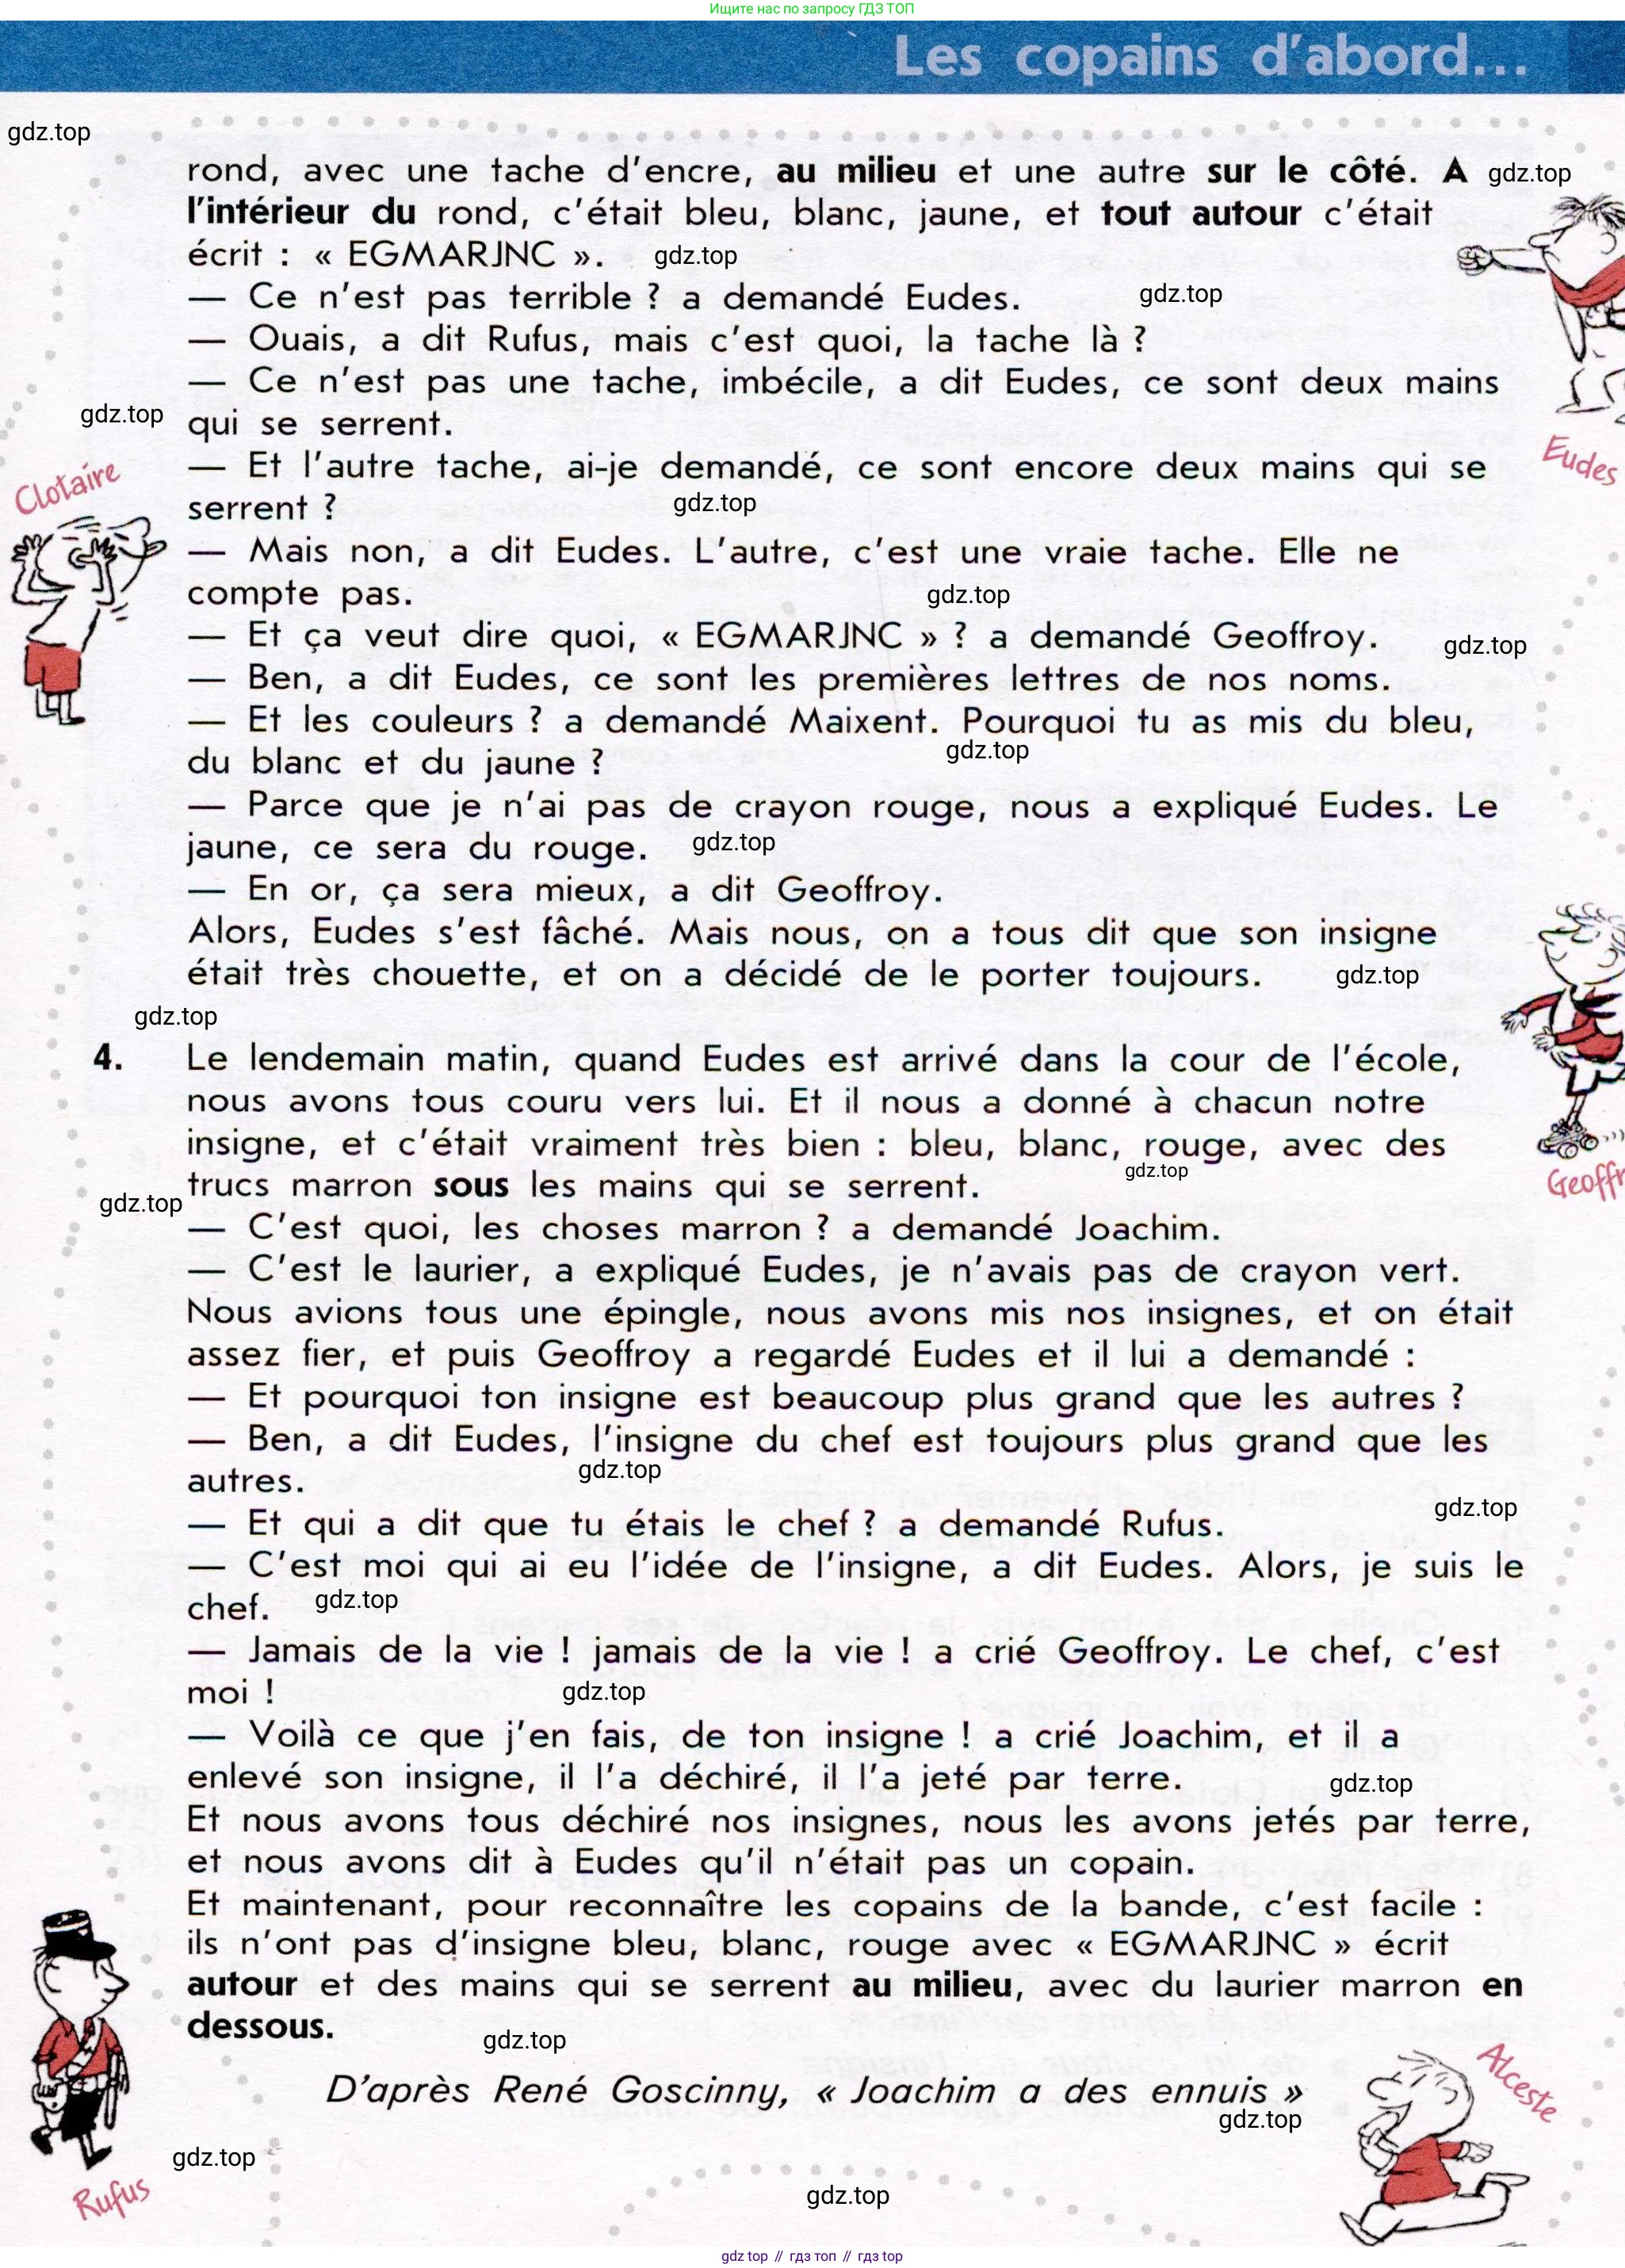 Ищите нас по запросу ГДЗ ТОП
Les copains d'abord...
gdz.top
rond, avec une tache d'encre, au milieu et une autre sur le côté. A
gdz.top
l'intérieur du rond, c'était bleu, blanc, jaune, et tout autour c'était
écrit : « EGMARJNC ».
gdz.top
— Ce n'est pas terrible ? a demandé Eudes.
gdz.top
— Ouais, a dit Rufus, mais c'est quoi, la tache là ?
— Ce n'est pas une tache, imbécile, a dit Eudes, ce sont deux mains
gdz.top
qui se serrent.
Eudes
— Et l'autre tache, ai-je demandé, ce sont encore deux mains qui se
Clotaire
serrent ?
gdz.top
— Mais non, a dit Eudes. L'autre, c'est une vraie tache. Elle ne
compte pas.
gdz.top
— Et ça veut dire quoi, « EGMARJNC » ? a demandé Geoffroy.
gdz.top
— Ben, a dit Eudes, ce sont les premières lettres de nos noms.
— Et les couleurs ? a demandé Maixent. Pourquoi tu as mis du bleu,
du blanc et du jaune ?
gdz.top
— Parce que je n'ai pas de crayon rouge, nous a expliqué Eudes. Le
jaune, ce sera du rouge.
gdz.top
— En or, ça sera mieux, a dit Geoffroy.
Alors, Eudes s'est fâché. Mais nous, on a tous dit que son insigne
était très chouette, et on a décidé de le porter toujours.
gdz.top
gdz.top
4. Le lendemain matin, quand Eudes est arrivé dans la cour de l'école,
nous avons tous couru vers lui. Et il nous a donné à chacun notre
insigne, et c'était vraiment très bien : bleu, blanc, rouge, avec des
gdz.top
trucs marron sous les mains qui se serrent.
gdz.top
Geoffr
— C'est quoi, les choses marron ? a demandé Joachim.
— C'est le laurier, a expliqué Eudes, je n'avais pas de crayon vert.
Nous avions tous une épingle, nous avons mis nos insignes, et on était
assez fier, et puis Geoffroy a regardé Eudes et il lui a demandé :
— Et pourquoi ton insigne est beaucoup plus grand que les autres ?
— Ben, a dit Eudes, l'insigne du chef est toujours plus grand que les
autres.
gdz.top
gdz.top
— Et qui a dit que tu étais le chef ? a demandé Rufus.
— C'est moi qui ai eu l'idée de l'insigne, a dit Eudes. Alors, je suis le
chef.
gdz.top
— Jamais de la vie ! jamais de la vie ! a crié Geoffroy. Le chef, c'est
moi !
gdz.top
— Voilà ce que j'en fais, de ton insigne ! a crié Joachim, et il a
enlevé son insigne, il l'a déchiré, il l'a jeté par terre.
gdz.top
Et nous avons tous déchiré nos insignes, nous les avons jetés par terre,
et nous avons dit à Eudes qu'il n'était pas un copain.
Et maintenant, pour reconnaître les copains de la bande, c'est facile :
ils n'ont pas d'insigne bleu, blanc, rouge avec « EGMARJNC » écrit
autour et des mains qui se serrent au milieu, avec du laurier marron en
dessous.
gdz.top
D'après René Goscinny, « Joachim a des ennuis »
Alceste
gdz.top
gdz.top
Rufus
gdz.top
gdz top // гдз топ // гдз top